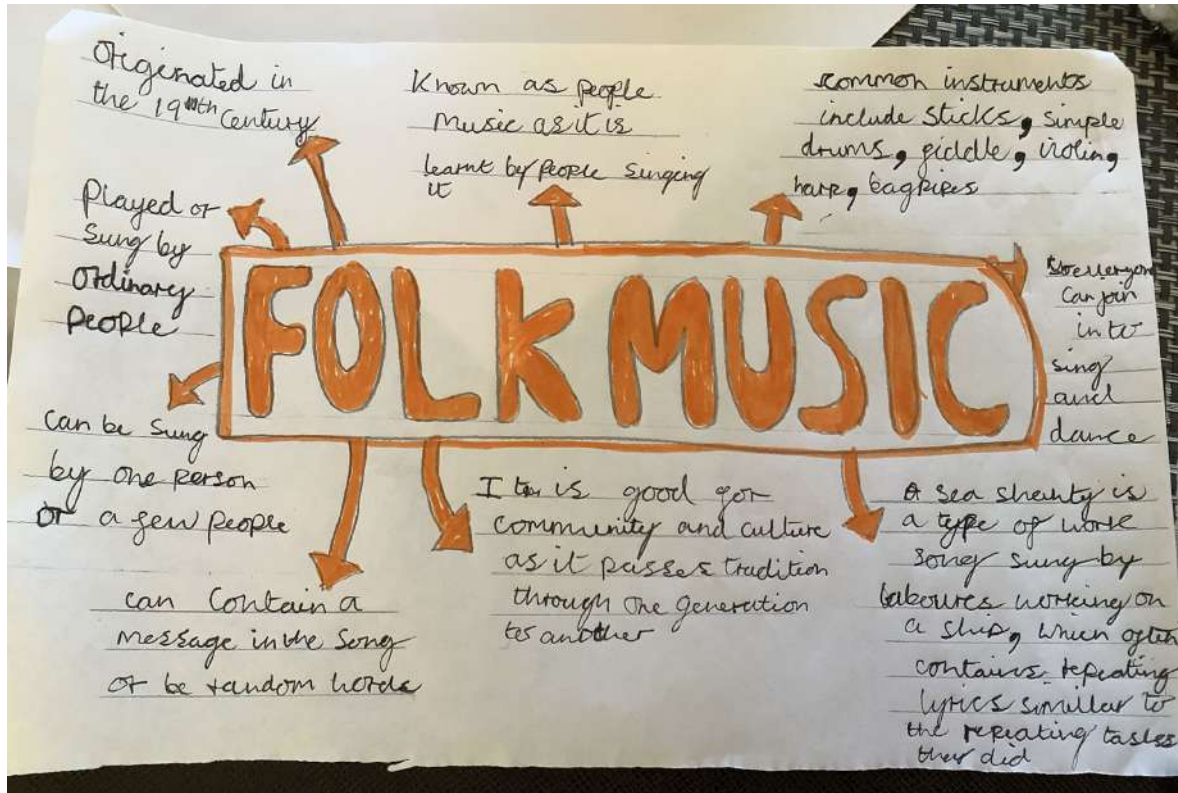 Originated in
the 19th Century
Known as people
Music as it is
learnt by people singing
it
common instruments
include sticks, simple
drums, fiddle, violin,
harp, bagpipes
Played or
sung by
ordinary
People
FOLK MUSIC
so everyone
Can join
in to
sing
and
dance
can be sung
by one person
or a few people
It is good for
community and culture
as it passes tradition
through one generation
to another
A sea shanty is
a type of work
song sung by
laboures working on
a ship, which often
contains repeating
lyrics similar to
the repeating tasks
they did
can contain a
message in the song
or be random words